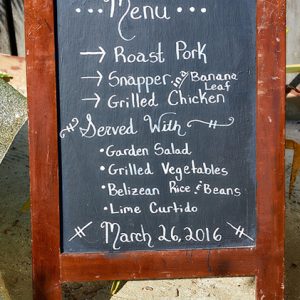 ... Menu ...
→ Roast Pork
→ Snapper in a Banana Leaf
→ Grilled Chicken
Served With
• Garden Salad
• Grilled Vegetables
• Belizean Rice & Beans
• Lime Curtido
March 26, 2016